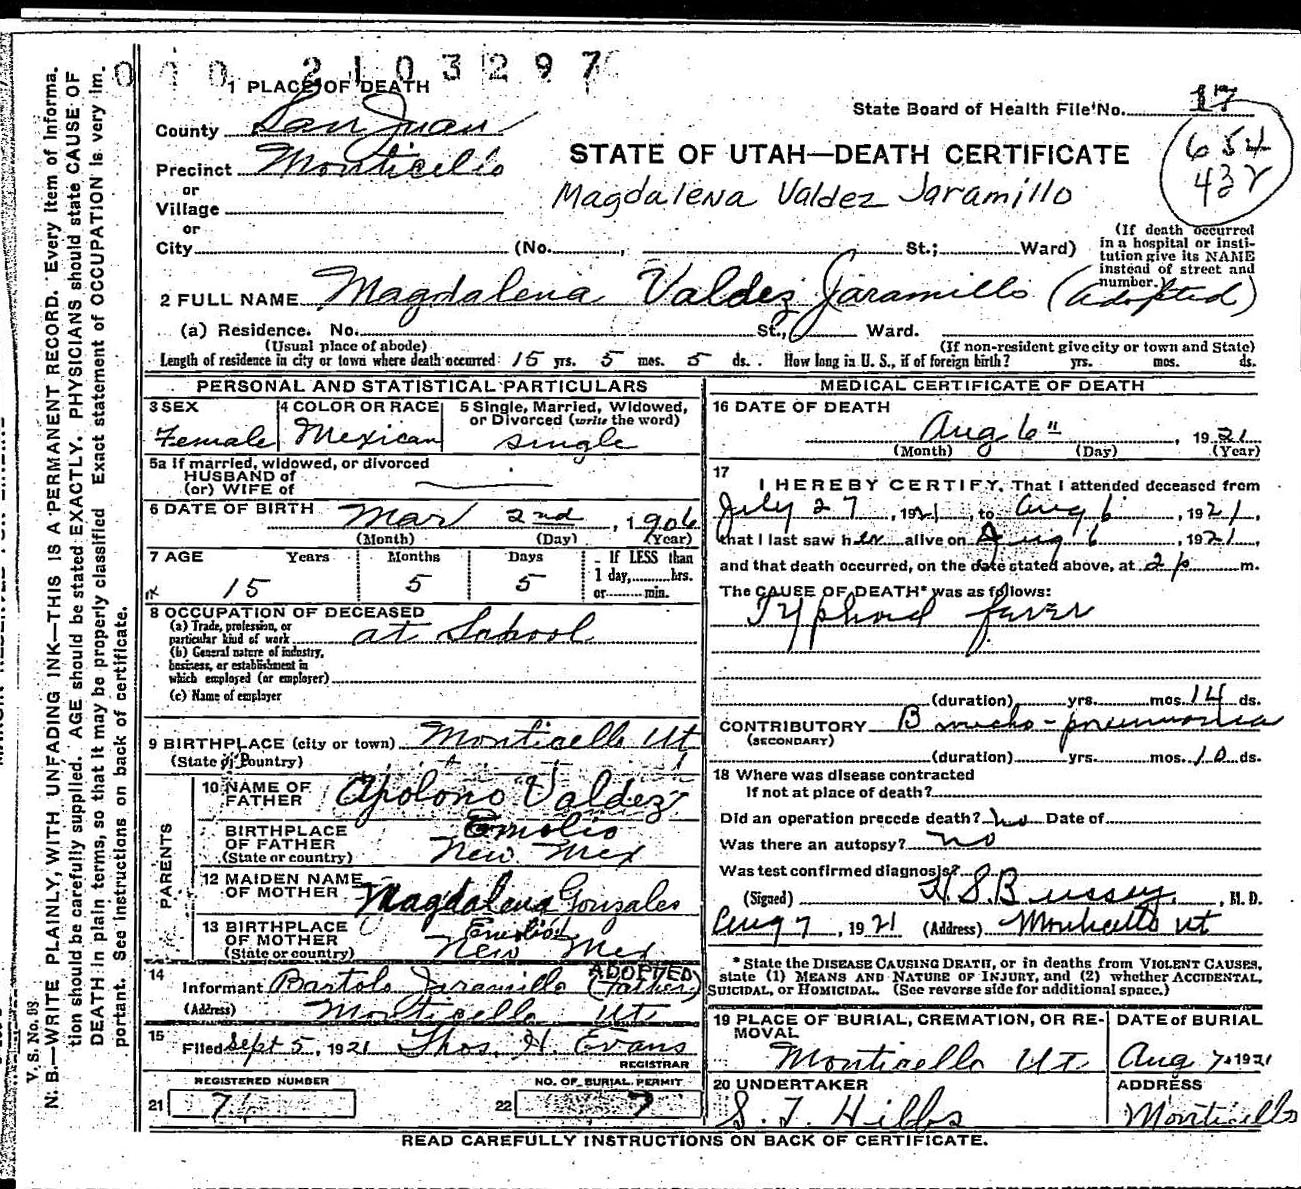 2103297
1 PLACE OF DEATH
State Board of Health File No. 17
County San Juan
654
432
Precinct Monticello
STATE OF UTAH—DEATH CERTIFICATE
or
Village
Magdalena Valdez Jaramillo
or
City (No. , St.; Ward)
(If death occurred
in a hospital or insti-
tution give its NAME
instead of street and
number.)
2 FULL NAME Magdalena Valdez Jaramillo (Adopted)
(a) Residence. No. St., Ward.
(Usual place of abode) (If non-resident give city or town and State)
Length of residence in city or town where death occurred 15 yrs. 5 mos. 5 ds. How long in U. S., if of foreign birth? yrs. mos. ds.
PERSONAL AND STATISTICAL PARTICULARS
3 SEX 4 COLOR OR RACE 5 Single, Married, Widowed,
or Divorced (write the word)
Female Mexican single
5a If married, widowed, or divorced
HUSBAND of
(or) WIFE of
6 DATE OF BIRTH Mar 2nd, 1906
(Month) (Day) (Year)
7 AGE Years Months Days If LESS than
15 5 5 1 day, hrs.
or min.
8 OCCUPATION OF DECEASED
(a) Trade, profession, or
particular kind of work at School
(b) General nature of industry,
business, or establishment in
which employed (or employer)
(c) Name of employer
9 BIRTHPLACE (city or town) Monticello Ut
(State or Country)
PARENTS
10 NAME OF
FATHER Apolono Valdez
BIRTHPLACE
OF FATHER
(State or country) New Mex
12 MAIDEN NAME
OF MOTHER Magdalena Gonzales
13 BIRTHPLACE
OF MOTHER
(State or country) New Mex
14 ADOPTED
Informant Bartolo Jaramillo (Father)
(Address) Monticello Ut
15
Filed Sept 5, 1921 Thos. H. Evans
REGISTRAR
REGISTERED NUMBER NO. OF BURIAL PERMIT
21 7 22 7
MEDICAL CERTIFICATE OF DEATH
16 DATE OF DEATH
Aug 6", 1921
(Month) (Day) (Year)
17
I HEREBY CERTIFY, That I attended deceased from
July 27, 1921, to Aug 6, 1921,
that I last saw her alive on Aug 6, 1921,
and that death occurred, on the date stated above, at 2 p m.
The CAUSE OF DEATH* was as follows:
Typhoid fever
(duration) yrs. mos. 14 ds.
CONTRIBUTORY Broncho-pneumonia
(SECONDARY)
(duration) yrs. mos. 10 ds.
18 Where was disease contracted
If not at place of death?
Did an operation precede death? no Date of
Was there an autopsy? no
Was test confirmed diagnosis?
(Signed) H.S. Bussey, M. D.
Aug 7, 1921 (Address) Monticello Ut
* State the DISEASE CAUSING DEATH, or in deaths from VIOLENT CAUSES,
state (1) MEANS AND NATURE OF INJURY, and (2) whether ACCIDENTAL,
SUICIDAL, or HOMICIDAL. (See reverse side for additional space.)
19 PLACE OF BURIAL, CREMATION, OR RE-
MOVAL
DATE of BURIAL
Monticello Ut. Aug 7, 1921
20 UNDERTAKER ADDRESS
S. T. Hibbs Monticello
READ CAREFULLY INSTRUCTIONS ON BACK OF CERTIFICATE.
V. S. No. 93
N. B.—WRITE PLAINLY, WITH UNFADING INK—THIS IS A PERMANENT RECORD. Every item of informa-
tion should be carefully supplied. AGE should be stated EXACTLY. PHYSICIANS should state CAUSE OF
DEATH in plain terms, so that it may be properly classified. Exact statement of OCCUPATION is very im-
portant. See instructions on back of certificate.